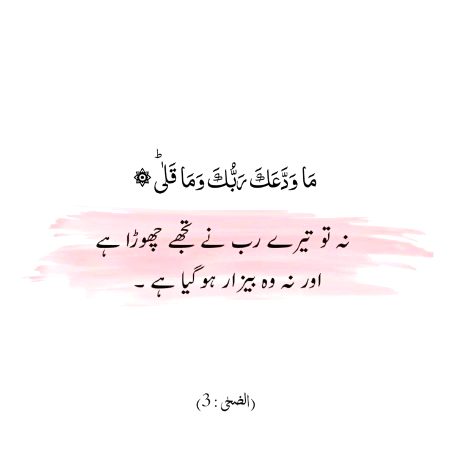 مَا وَدَّعَكَ رَبُّكَ وَمَا قَلٰىؕ ۞
نہ تو تیرے رب نے تجھے چھوڑا ہے
اور نہ وہ بیزار ہو گیا ہے ۔
(الضحٰی : 3)